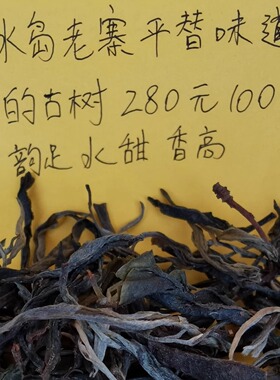 冰岛老寨平替味道
的古树280元100
韵足水甜香高